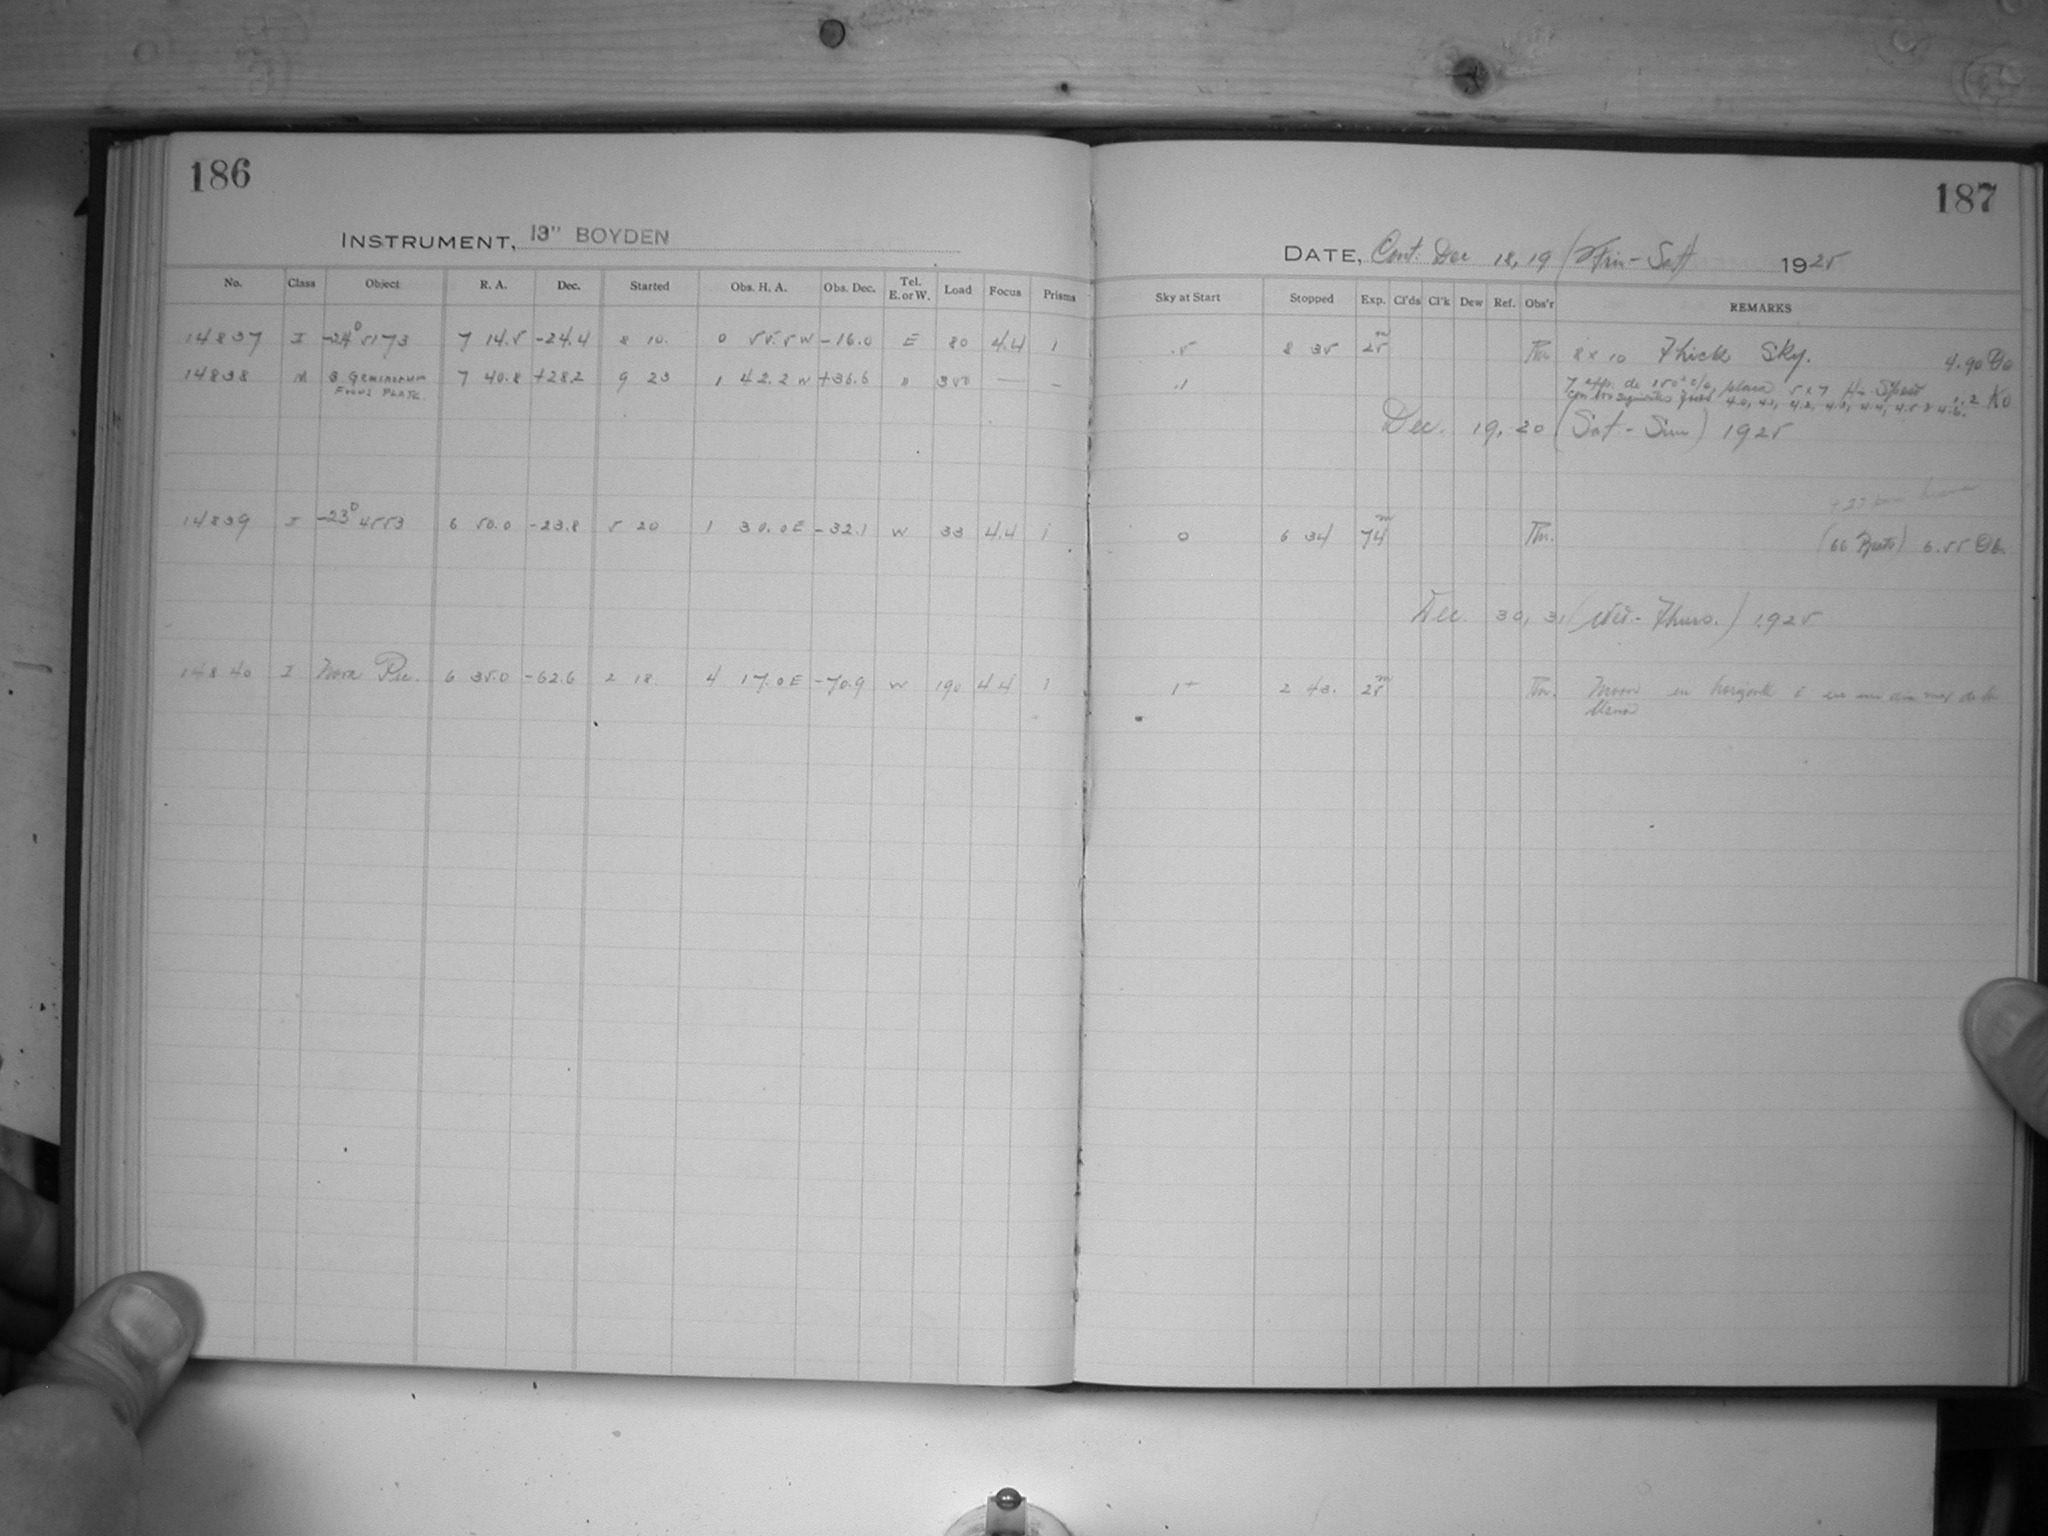 186
INSTRUMENT, 13" BOYDEN
No. Class Object R. A. Dec. Started Obs. H. A. Obs. Dec. Tel. E. or W. Load Focus Prisms
14837 I -24° 5173 7 14.5 -24.4 8 10. 0 55.5 W -16.0 E 80 4.4 1
14838 M β GEMINORUM 7 40.8 +28.2 9 23 1 42.2 W +36.6 " 350 — —
FOCUS PLATE.
14839 I -23° 4553 6 50.0 -23.8 5 20 1 30.0 E -32.1 W 33 4.4 1
14840 I Nova Pic. 6 35.0 -62.6 2 18. 4 17.0 E -70.9 W 190 4.4 1
187
DATE, Cont. Dec 18, 19 (Fri - Sat) 1925
Sky at Start Stopped Exp. Cl'ds Cl'k Dew Ref. Obs'r REMARKS
.5 8 35 25m 8 x 10 Thick Sky. 4.90
7 exp. de 150s c/u, placa 5 x 7 Hi-Speed 1.2 K0
con los siguientes 4.0, 4.1, 4.2, 4.3, 4.4, 4.5 y 4.6.
Dec. 19, 20 (Sat. - Sun) 1925
0 6 34 74m 6.55
Dec. 30, 31 (Wed. - Thurs.) 1925.
1+ 2 43. 25m Moon en horizonte E